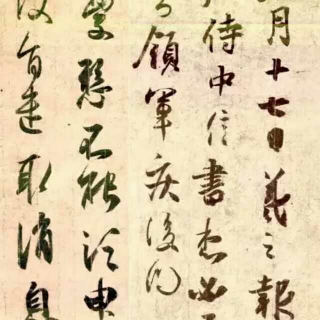 月十七日羲之報
侍中信書想必
領軍疾後問
憂懸不能須臾
故旨遣取消息